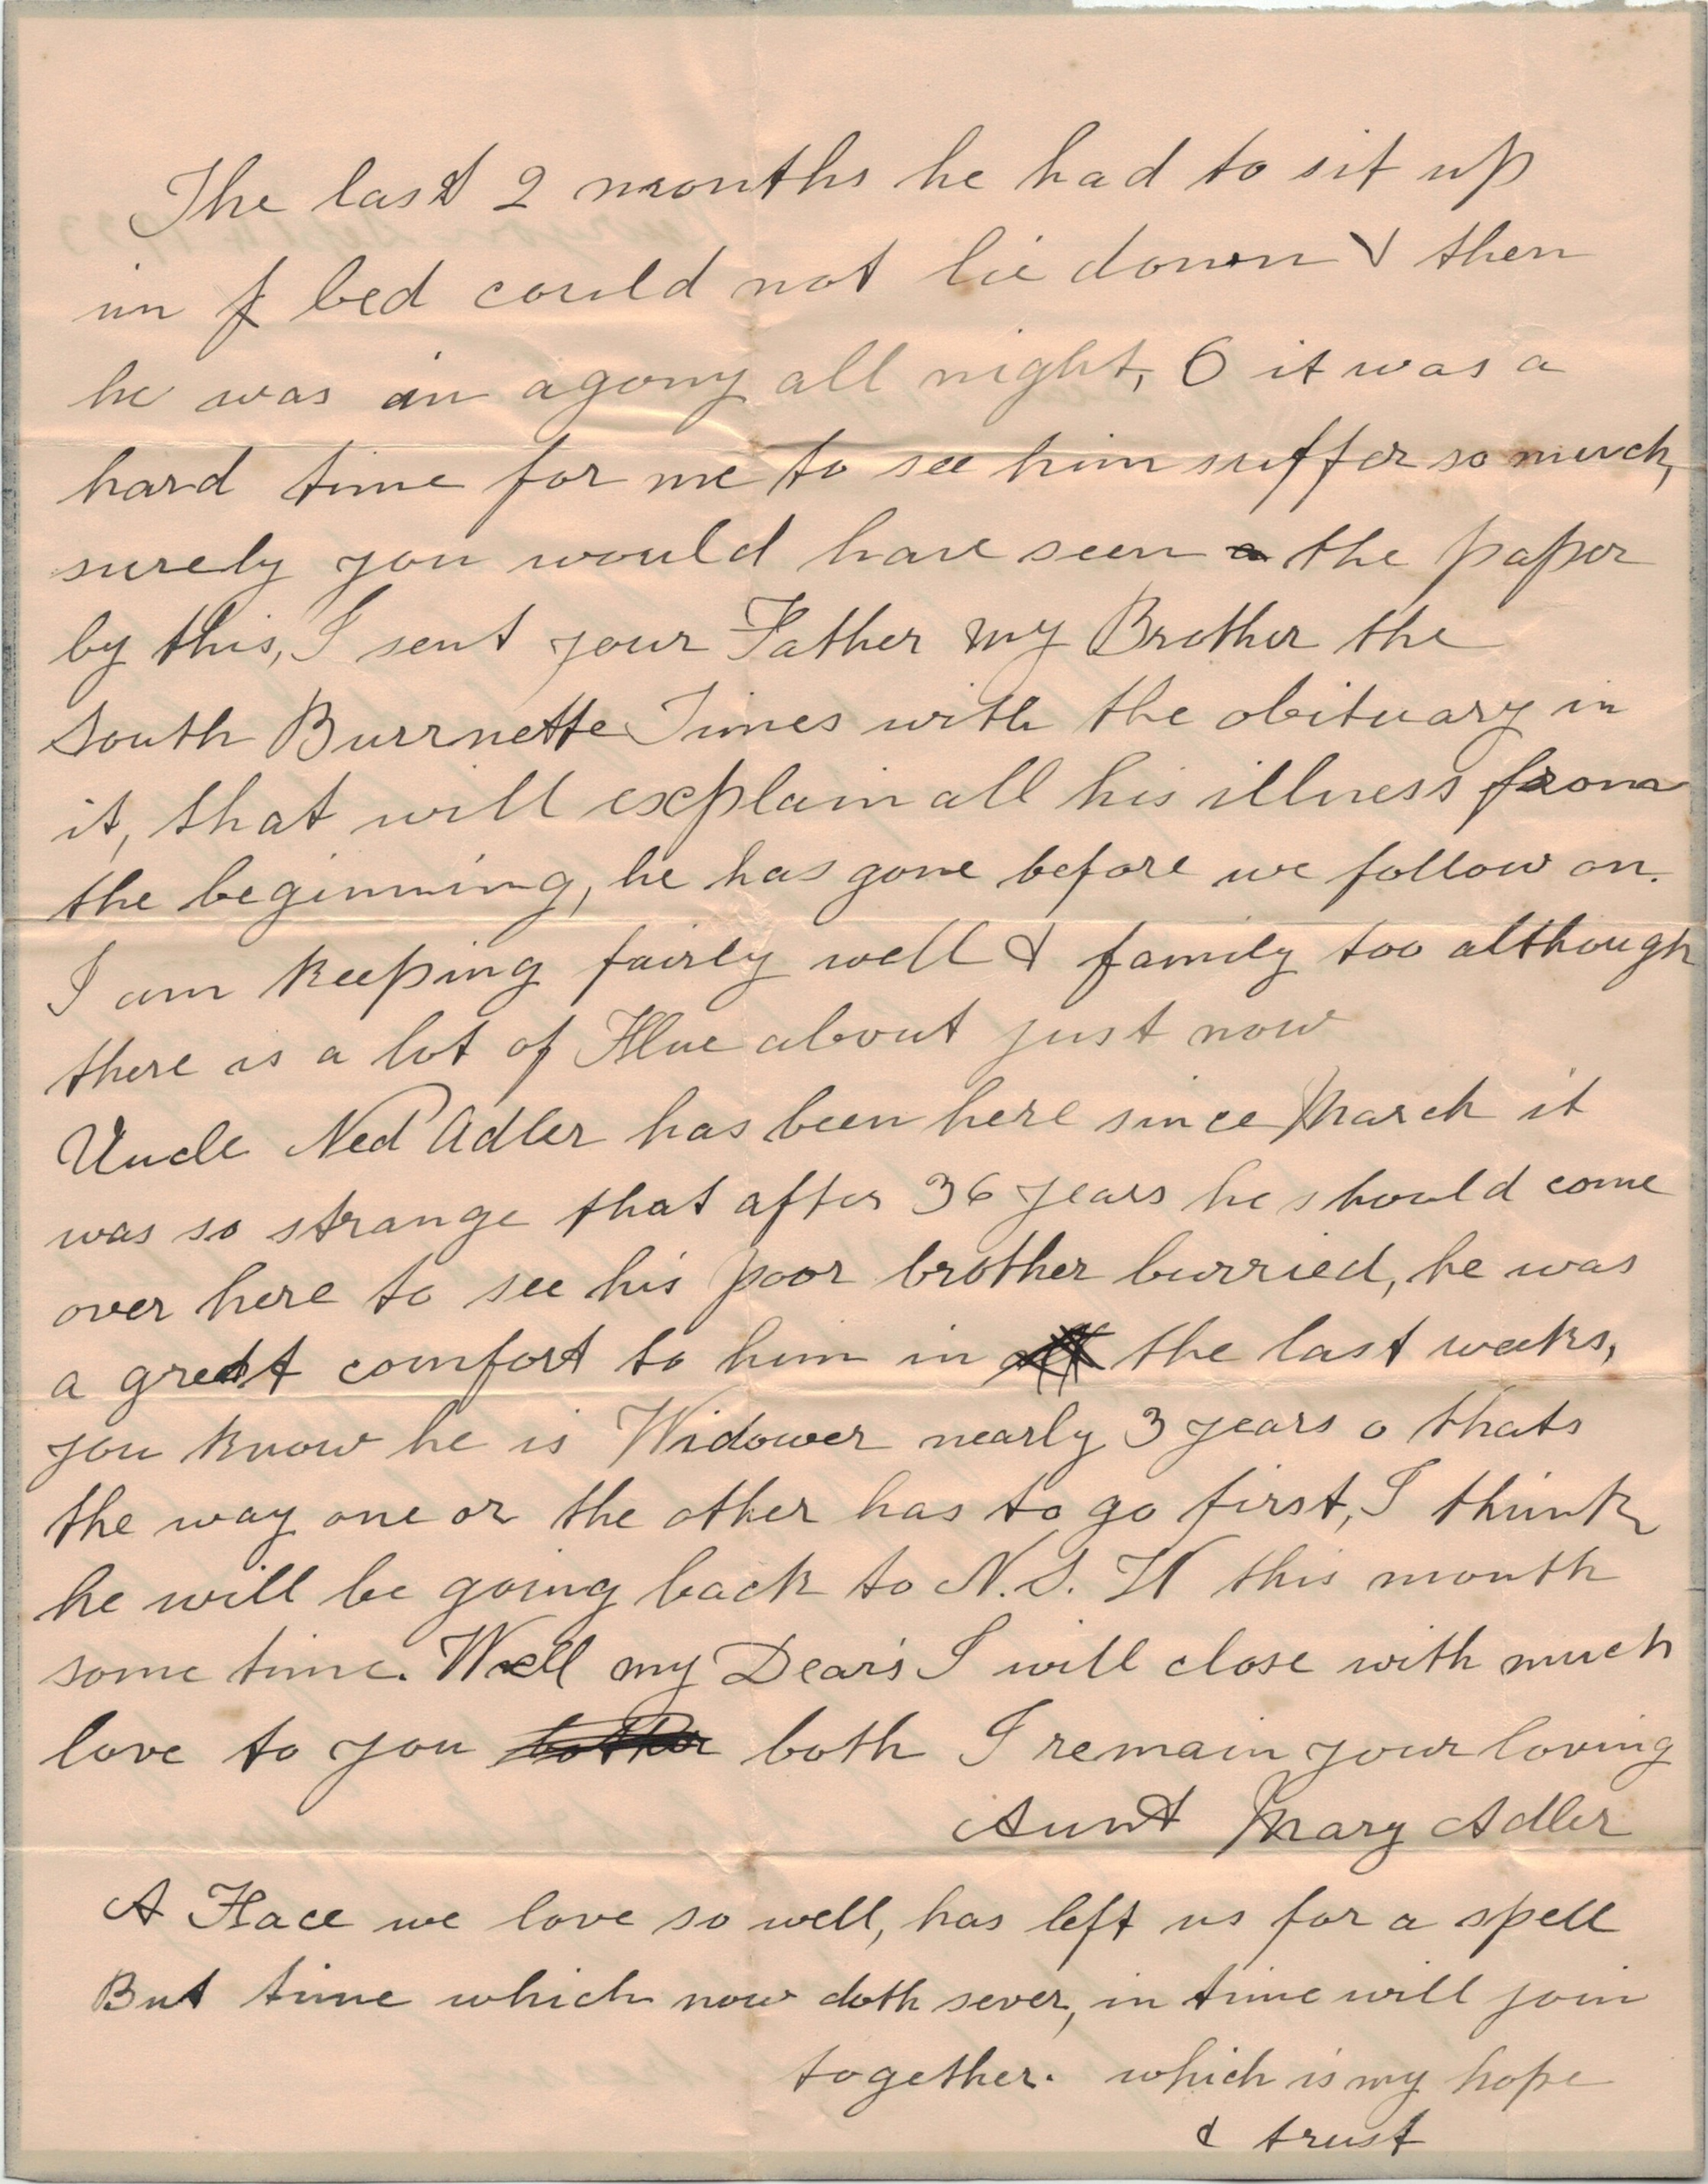 The last 2 months he had to sit up
in f bed could not lie down & then
he was in agony all night, O it was a
hard time for me to see him suffer so much,
surely you would have seen a the paper
by this, I sent your Father my Brother the
South Burrnette Times with the obituary in
it, that will explain all his illness from
the beginning, he has gone before we follow on.
I am keeping fairly well & family too although
there is a lot of Flue about just now
Uncle Ned Adler has been here since March it
was so strange that after 36 years he should come
over here to see his poor brother burried, he was
a great comfort to him in the last weeks,
you know he is Widower nearly 3 years o thats
the way one or the other has to go first, I think
he will be going back to N.S. W this month
some time. Well my Dear's I will close with much
love to you both I remain your loving
Aunt Mary Adler
A Face we love so well, has left us for a spell
But time which now doth sever, in time will join
together. which is my hope
& trust